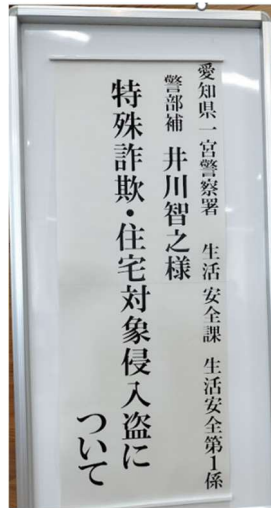 愛知県一宮警察署 生活安全課 生活安全第1係
警部補 井川智之様
特殊詐欺・住宅対象侵入盗に
ついて